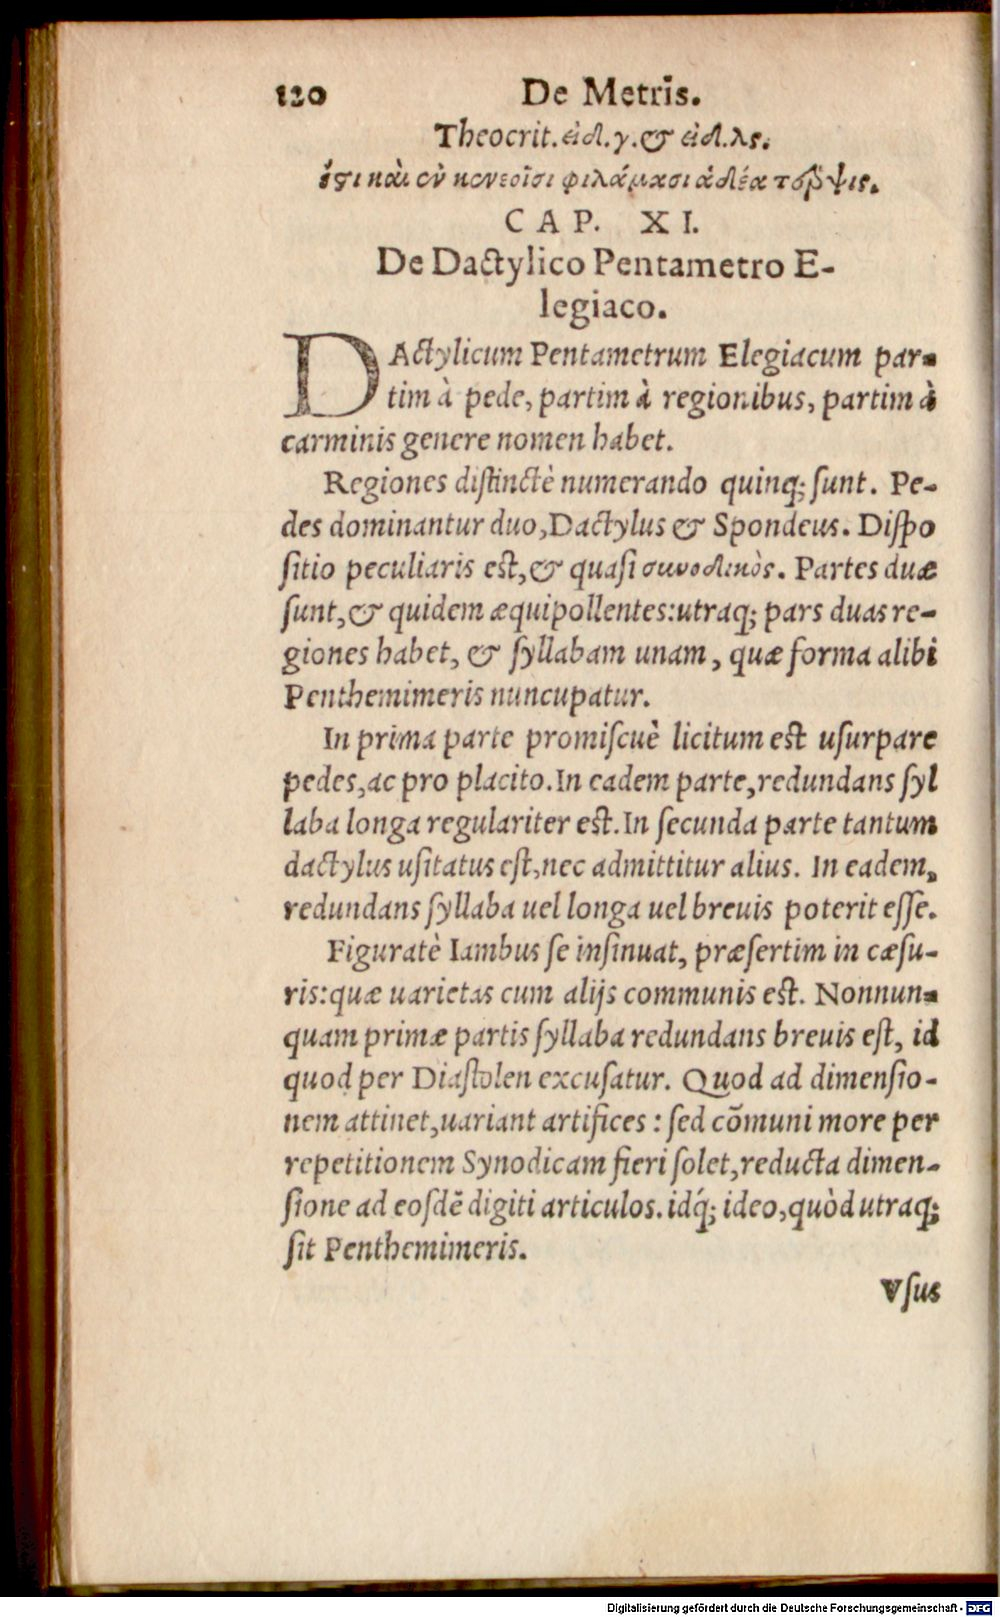 120 De Metris.
Theocrit. εἰδ. γ. & εἰδ. λς.
ἔστι καὶ ἐν κενεοῖσι φιλάμασι ἁδέα τέρψις.
CAP. XI.
De Dactylico Pentametro E-
legiaco.
DActylicum Pentametrum Elegiacum par-
tim à pede, partim à regionibus, partim à
carminis genere nomen habet.
Regiones distinctè numerando quinq; sunt. Pe-
des dominantur duo, Dactylus & Spondeus. Dispo
sitio peculiaris est, & quasi συνοδικὸς. Partes duæ
sunt, & quidem æquipollentes: utraq; pars duas re-
giones habet, & syllabam unam, quæ forma alibi
Penthemimeris nuncupatur.
In prima parte promiscuè licitum est usurpare
pedes, ac pro placito. In eadem parte, redundans syl
laba longa regulariter est. In secunda parte tantum
dactylus usitatus est, nec admittitur alius. In eadem,
redundans syllaba uel longa uel breuis poterit esse.
Figuratè Iambus se insinuat, præsertim in cæsu-
ris: quæ uarietas cum alijs communis est. Nonnun-
quam primæ partis syllaba redundans breuis est, id
quod per Diastolen excusatur. Quod ad dimensio-
nem attinet, uariant artifices: sed cõmuni more per
repetitionem Synodicam fieri solet, reducta dimen-
sione ad eosdẽ digiti articulos. idq́; ideo, quòd utraq;
sit Penthemimeris.
Vsus
Digitalisierung gefördert durch die Deutsche Forschungsgemeinschaft - DFG